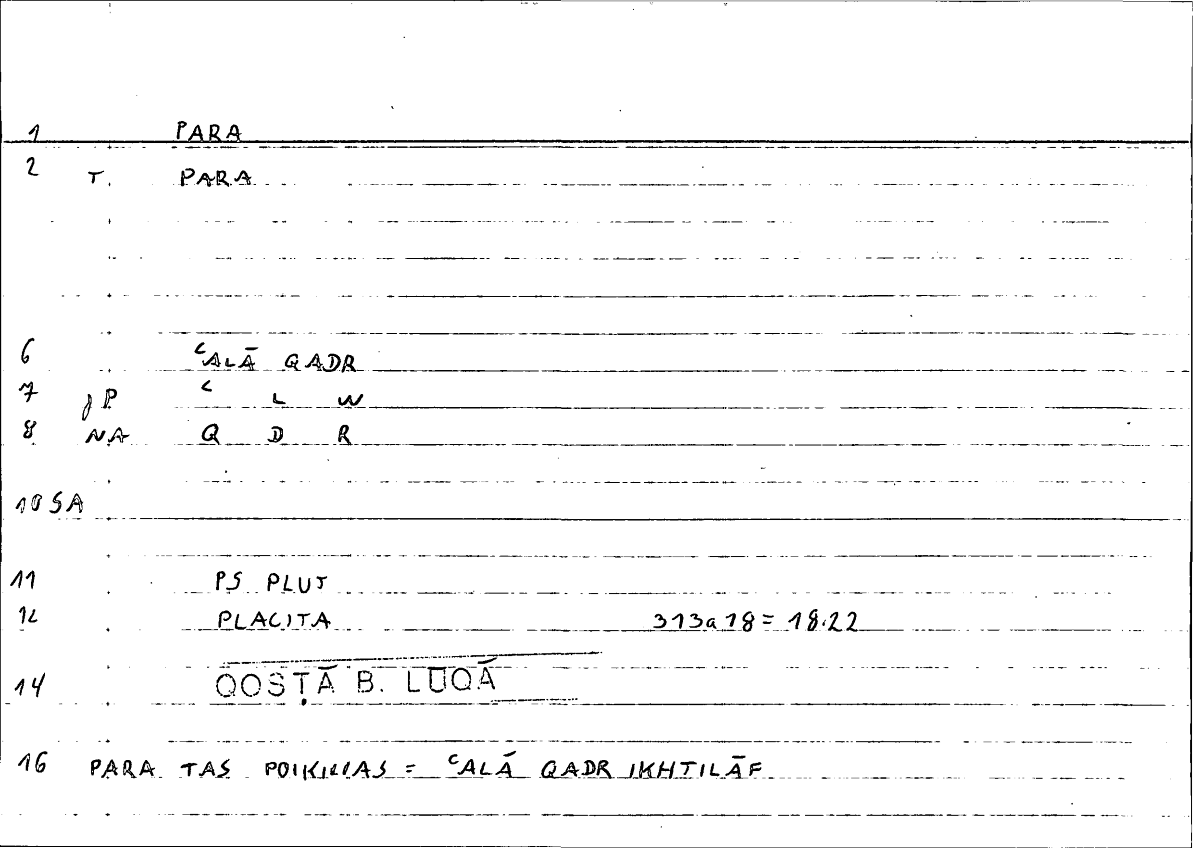 1 PARA
2 T. PARA
6 ʿALĀ QADR
7 JP ʿ L W
8 NA Q D R
10 SA
11 PS PLUT
12 PLACITA 313a18 = 18.22
14 QOSṬĀ B. LŪQĀ
16 PARA TAS POIKILIAS = ʿALĀ QADR IKHTILĀF